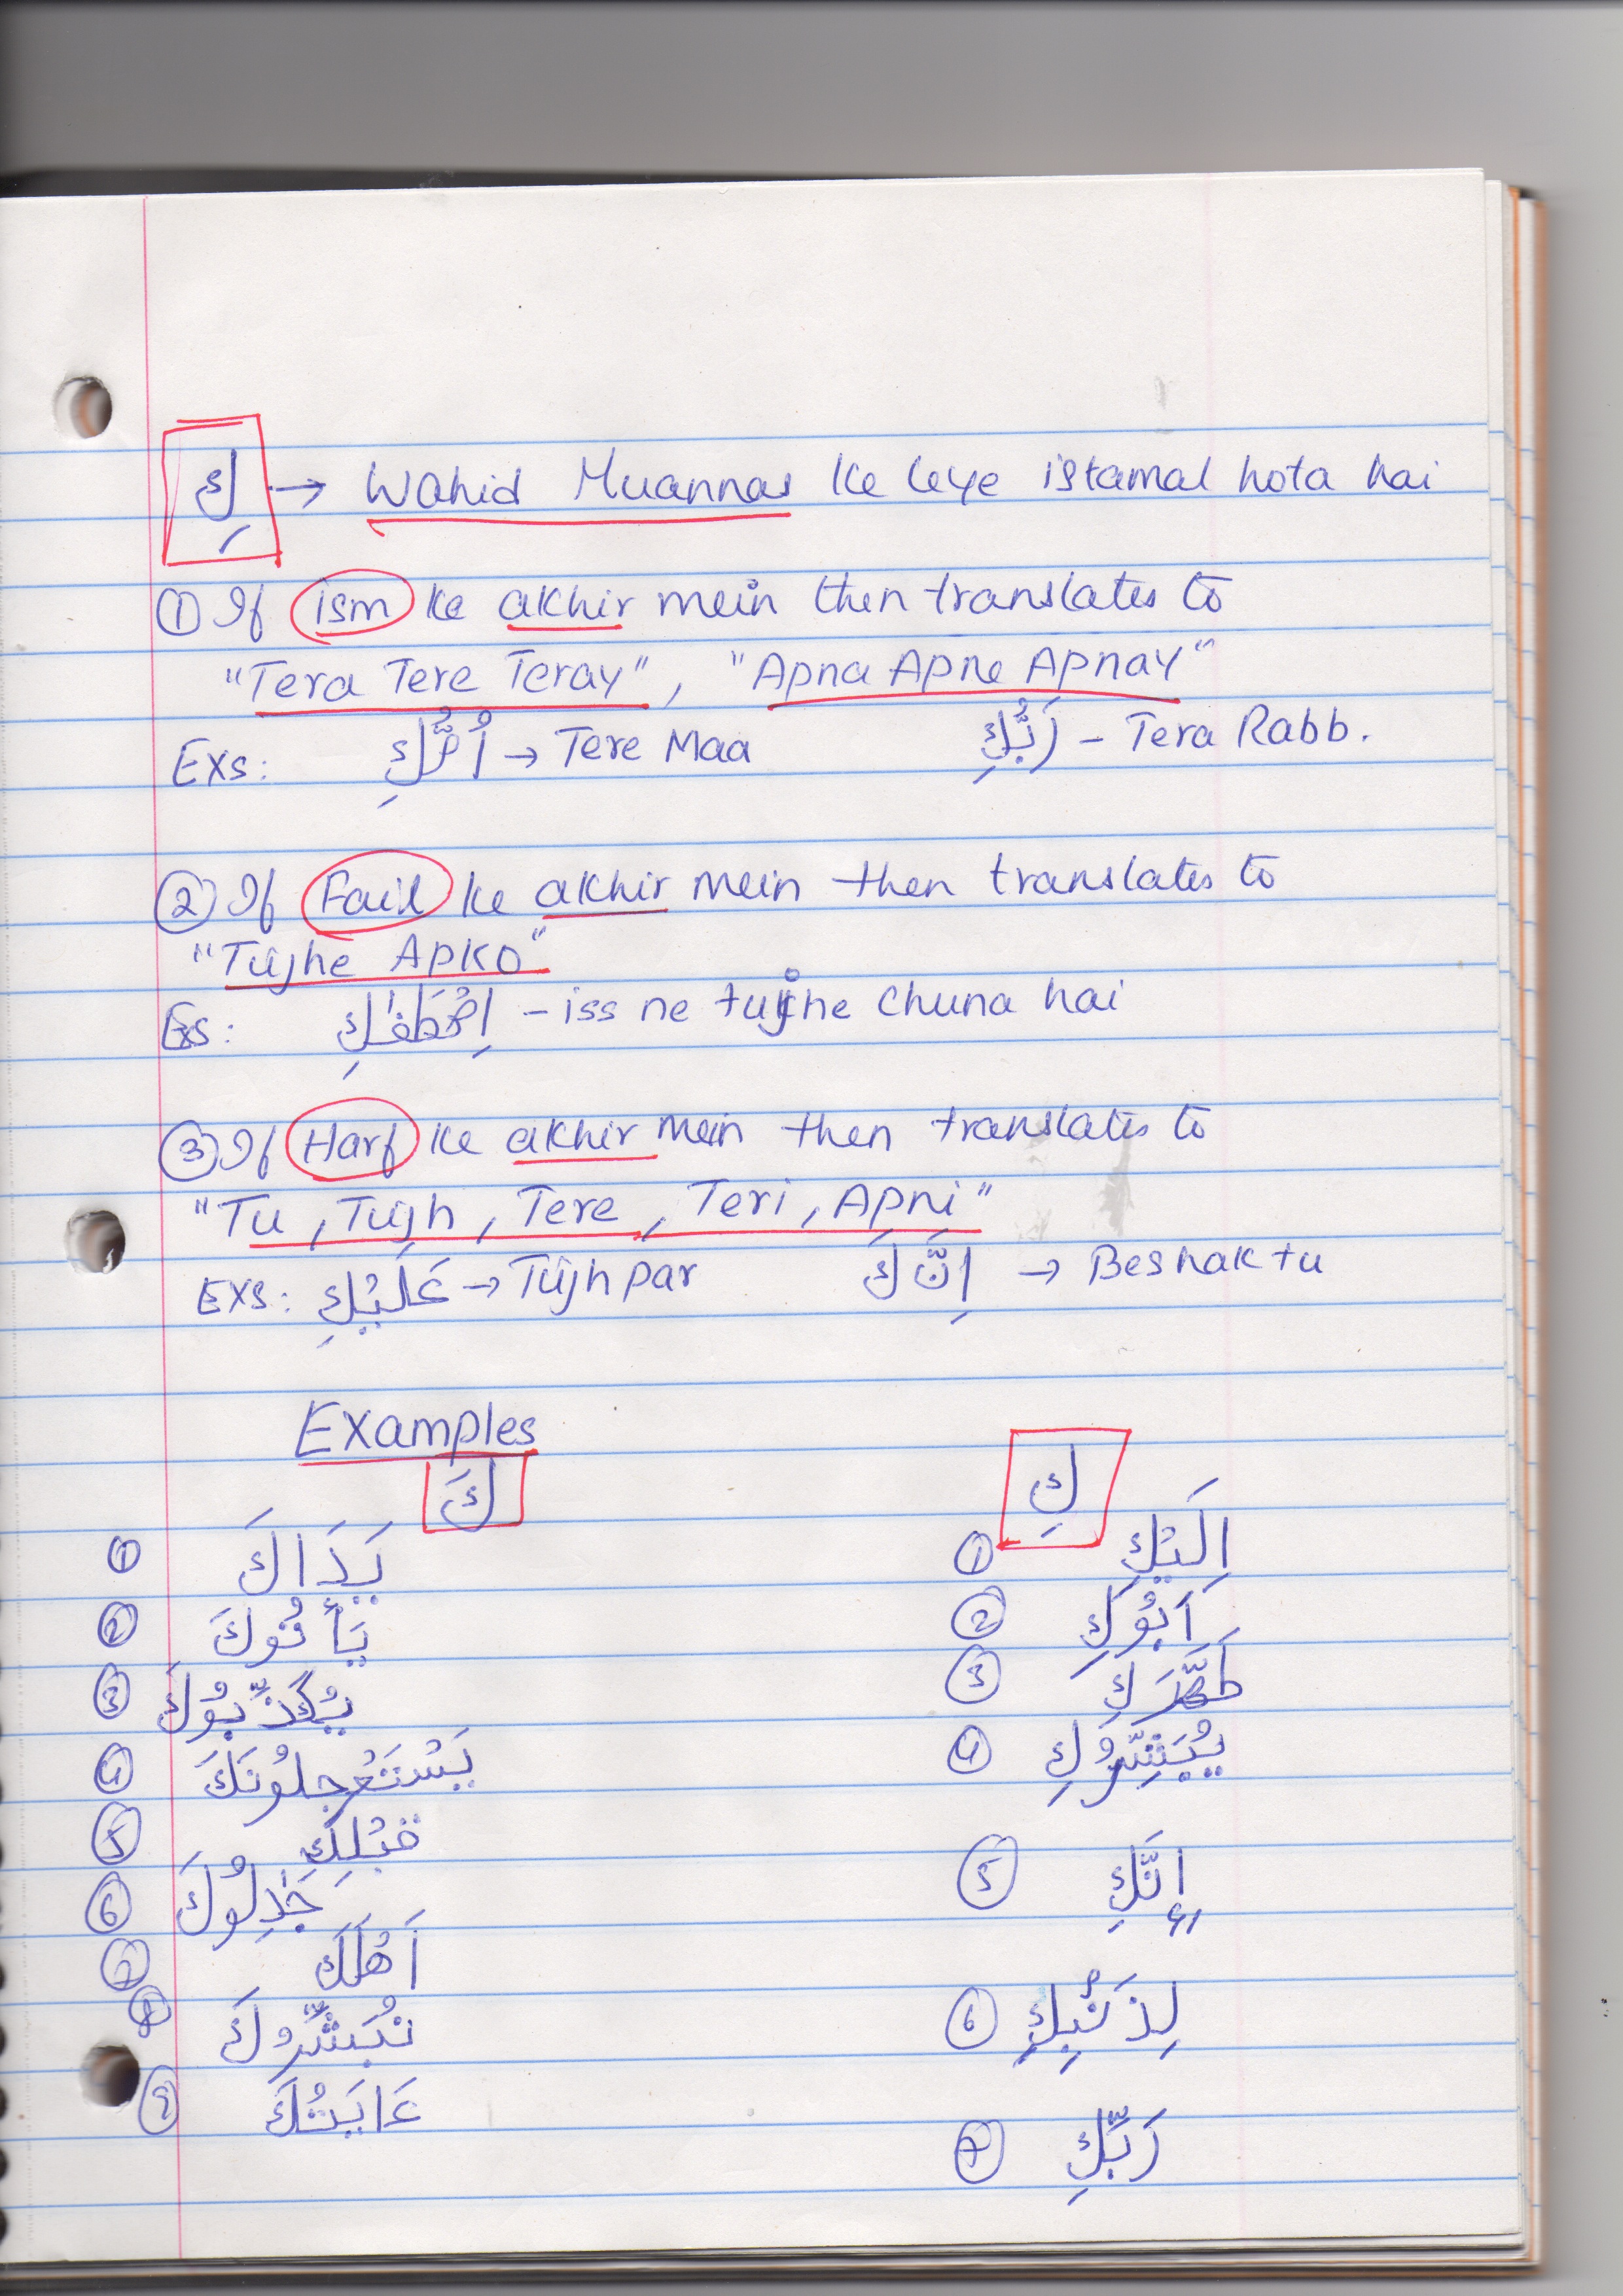 كِ → Wahid Muannas ke leye istamal hota hai
① If ism ke akhir mein then translates to
"Tera Tere Teray", "Apna Apne Apnay"
Exs: اُمُّكِ → Tere Maa رَبُّكِ – Tera Rabb.
② If Fail ke akhir mein then translates to
"Tujhe Apko"
Exs: اِصْطَفٰىكِ – iss ne tujhe chuna hai
③ If Harf ke akhir mein then translates to
"Tu, Tujh, Tere, Teri, Apni"
Exs: عَلَيْكِ → Tujh par اِنَّكَ → Beshak tu
Examples
كَ كِ
① يَدَاكَ ① اِلَيْكِ
② يَأْتُوكَ ② اَبُوْكِ
③ يُكَذِّبُوْكَ ③ طَهَّرَكِ
④ يَسْتَعْجِلُوْنَكَ ④ يُبَشِّرُوكِ
⑤ قَبْلِكَ ⑤ إِنَّكِ
⑥ جٰدَلُوْكَ
⑦ اَهْلَكَ
⑧ نُبَشِّرُوكَ ⑥ لِذَنْبِكِ
⑨ ءَايَتُكَ ⑦ رَبِّكِ